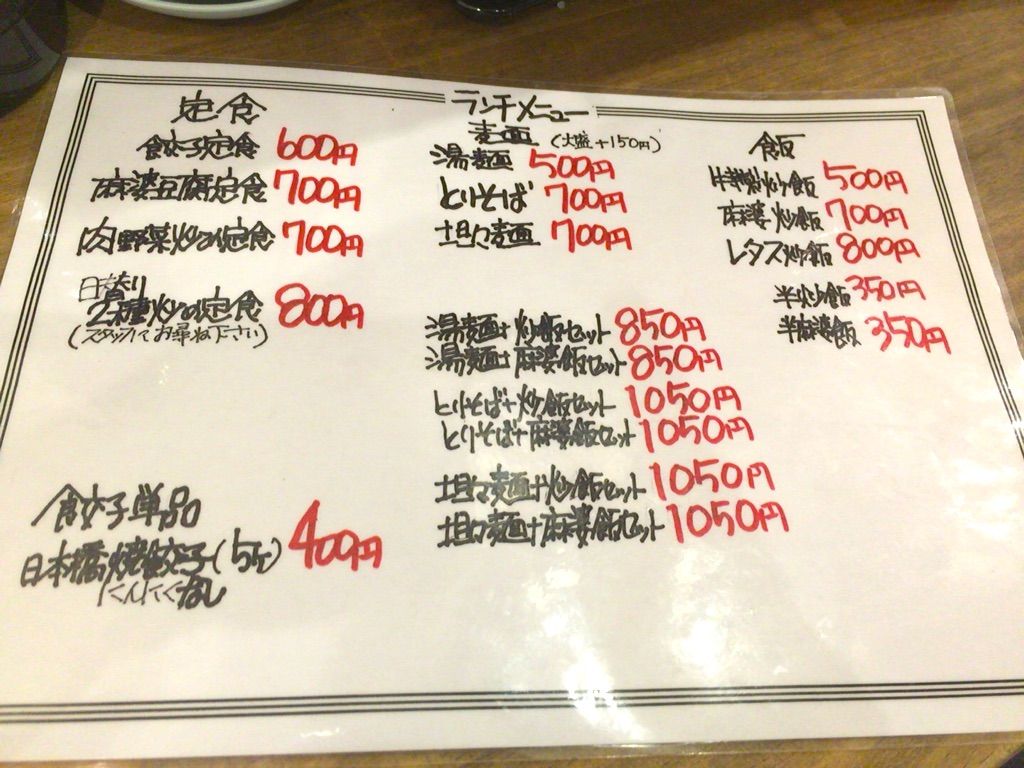 ランチメニュー
定食
餃子定食 600円
麻婆豆腐定食 700円
肉野菜炒め定食 700円
日替り
2種炒め定食 800円
(スタッフにてお尋ね下さい)
餃子単品
日本橋焼餃子(5ケ) 400円
にんにくなし
麦面 (大盛+150円)
湯麺 500円
とりそば 700円
坦々麺 700円
湯麺+炒飯セット 850円
湯麺+麻婆飯セット 850円
とりそば+炒飯セット 1050円
とりそば+麻婆飯セット 1050円
坦々麺+炒飯セット 1050円
坦々麺+麻婆飯セット 1050円
飯
炒飯 500円
麻婆炒飯 700円
レタス炒飯 800円
半炒飯 350円
半麻婆飯 350円